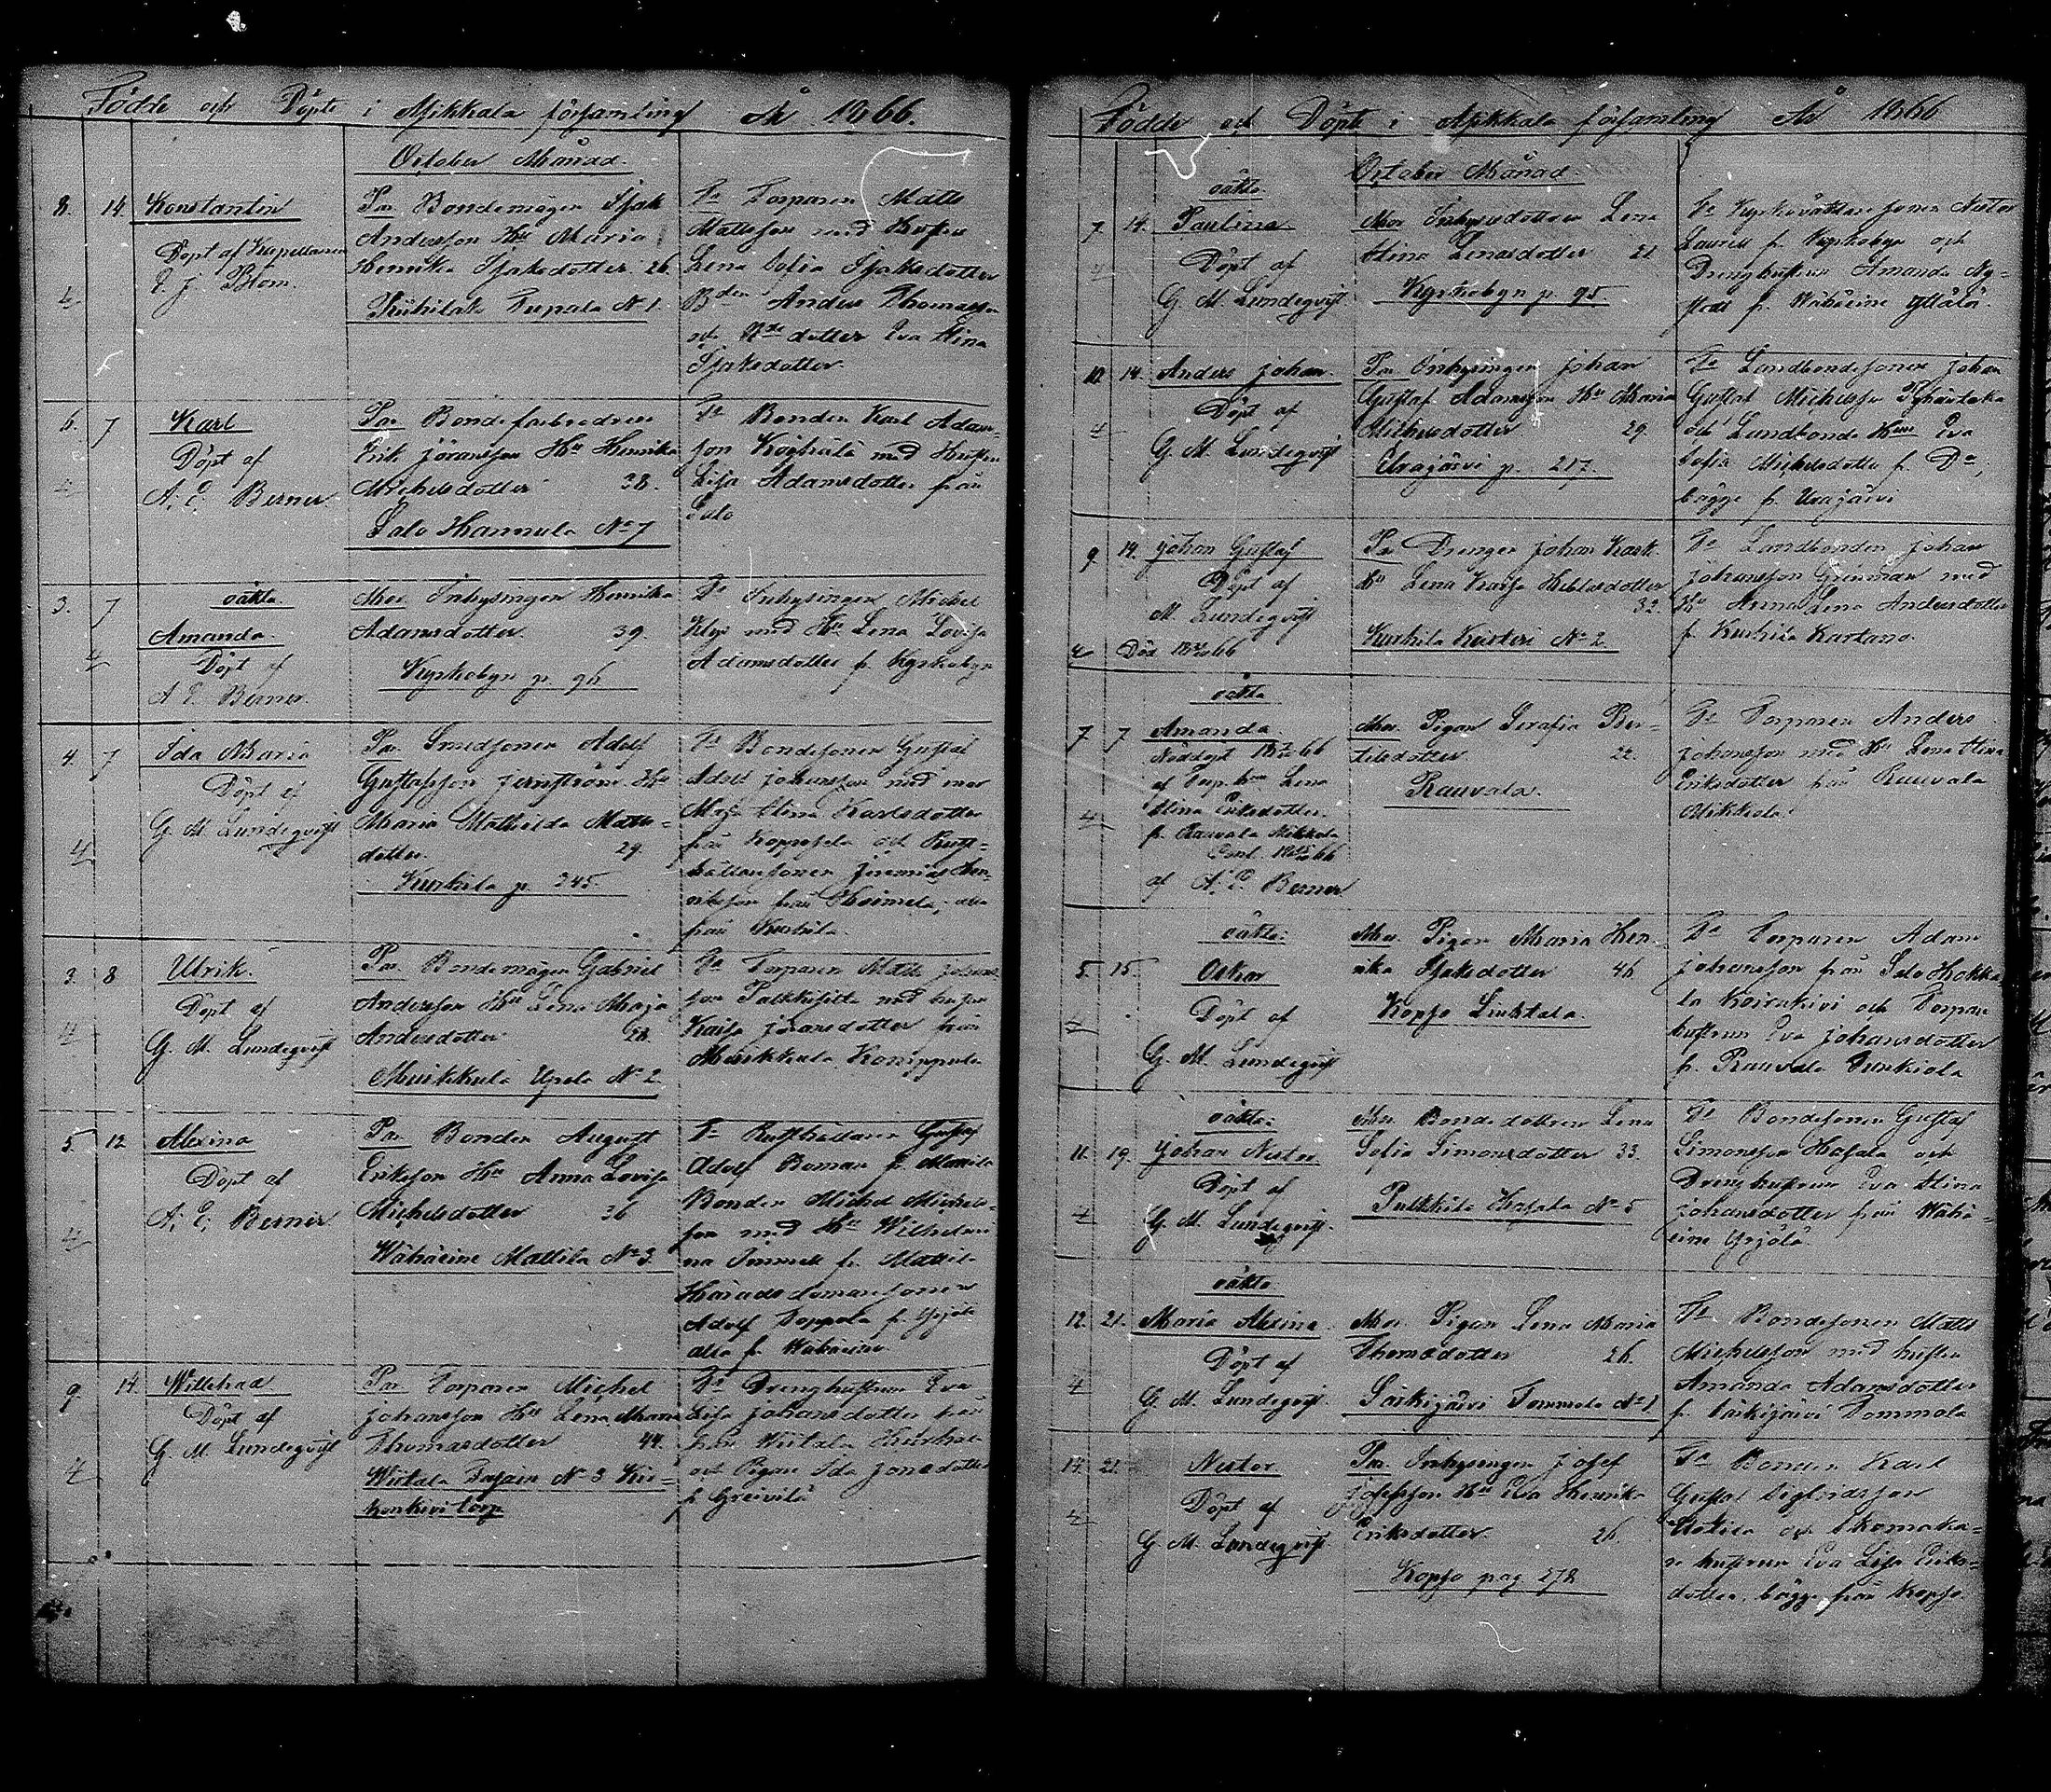 Födde och Döpte i Asikkala församling År 1866.
October Månad.
8. 14. Konstantin
Döpt af Kapellanen
E. J. Blom.
4
Par. Bondemågen Isak
Andersson Hu Maria
Henrika Isaksdotter. 26.
Kuhilaks N:o 1.
Fr Torparen Matts
Mattsson med Hustru
Lena Sofia Isaksdotter
Bden Anders Thomasson
och Bde dotter Eva Stina
Isaksdotter.
6. 7 Karl
Döpt af
A. E. Berner.
4
Par Bondefarbrodren
Erik Jöransson Hu Henrika
Michelsdotter 38.
Salo Hannula No 7
Fr Bonden Karl Adam-
son med Hustru
Lisa Adamsdotter från
Salo
3. 7 oäkta.
Amanda.
Döpt af
A E. Berner.
4
Mor Inhysingen Henrika
Adamsdotter. 39.
Kyrkobyn p. 96.
Fr Inhysingen Michel
med Hu Lena Lovisa
Adamsdotter fr. Kyrkobyn
4. 7 Ida Maria
Döpt af
G. M. Lundeqvist
4
Par. Smedsonen Adolf
Gustafsson Jernström Hu
Maria Mathilda Matts-
dotter. 29.
Kurhila p. 245.
Fr Bondesonen Gustaf
Adolf Johansson med mor
Maja Stina Karlsdotter
från och Rust-
hållaresonen Jeremias Hen-
riksson från alla
från Kurhila.
3. 8 Ulrik.
Döpt af
G. M. Lundeqvist
4
Par. Bondemågen Gabriel
Andersson Hu Lena Maja
Andersdotter 28.
Muikkula Upola No 2.
Fr Torparen Matts Johans-
son med hustru
Kaisa Göransdotter från
Muikkula
5. 12 Alexina
Döpt af
A. E. Berner.
4
Par Bonden August
Eriksson Hu Anna Lovisa
Michelsdotter 36
Wähäeine Mattila No 3.
Fr Rusthållaren Gustaf
Adolf Boman fr. Mattila
Bonden Michel Michels-
son med Hu Wilhelmi-
na fr. Mattila
Häradsdomaresonen
Adolf Toppola fr.
alla fr Wähäeine.
9. 14. Willehad
Döpt af
G. M. Lundeqvist
4
Par Torparen Michel
Johansson Hu Lena Maria
Thomasdotter 44.
Wiitala No 3
torp
Fr Drenghustrun Eva
Lisa Johansdotter från
Wiitala
och Pigan Ida Jonasdotter
fr
Födde och Döpte i Asikkala församling År 1866
October Månad.
oäkta.
7. 14. Paulina
Döpt af
G. M. Lundeqvist
4
Mor Inhysesdottren Lena
Stina Lenasdotter 21
Kyrkobyn p. 95
Fr Kyrkovaktaresonen Nestor
Laurell fr. Kyrkobyn och
Drenghustrun Amanda Ny-
stedt fr. Wähäeine
10. 14. Anders Johan.
Döpt af
G. M. Lundeqvist
4
Par Inhysingen Johan
Gustaf Adamsson Hu Maria
Michelsdotter 29.
Urajärvi p. 217.
Fr Landbondesonen Johan
Gustaf Michelsson
och Landbonde Hun Eva
Sofia Michelsdotter fr. Do,
bägge fr. Urajärvi
9. 14. Johan Gustaf
Döpt af
M. Lundeqvist
4 Död 66
Par Drengen Johan Karl.
Hu Lena Kaisa
32.
Kurhila No 2.
Fr Landbonden Johan
Johansson Grönman med
Hu Anna Lena Andersdotter
fr. Kurhila Kartano.
oäkta
7 7 Amanda.
Nöddöpt 66
af Torp. hun Lena
Stina Eriksdotter.
fr. Rauvala Mikkola
66
af A. E. Berner
4
Mor. Pigan Serafia Ber-
telsdotter 22.
Rauvala.
Fr Torparen Anders
Johansson med Hu Lena Stina
Eriksdotter från Rauvala
Mikkola.
oäkta:
5. 15. Oskar
Döpt af
G. M. Lundeqvist
4
Mor. Pigan Maria Hen-
rika Isaksdotter 46.
Kopso
Fr Torparen Adam
Johansson från Salo
och Torpar
hustrun Eva Johansdotter
fr. Rauvala
oäkta:
11. 19. Johan Nestor
Döpt af
G. M. Lundeqvist.
4
Mor. Bondedottren Lena
Sofia Simonsdotter 33.
Pulkkila Hasala No 5
Fr Bondesonen Gustaf
Simonsson Hasala och
Drenghustrun Eva Stina
Johansdotter från Wähä-
eine Yrjölä
oäkta
12. 21. Maria Alexina
Döpt af
G. M. Lundeqvist.
4
Mor. Pigan Lena Maria
Thomasdotter 26.
Särkijärvi Tommola No 1
Fr Bondesonen Matts
Michelsson med hustru
Amanda Adamsdotter
fr. Särkijärvi Tommola
14. 21. Nestor
Döpt af
G. M. Lundeqvist.
4
Par. Inhysingen Josef
Josefsson Hu Eva Henrika
Eriksdotter 26.
Kopso pag 278
Fr Bonden Karl
Gustaf Sigfridsson
och skomaka-
re hustrun Eva Lisa Eriks-
dotter, bägge från Kopso.